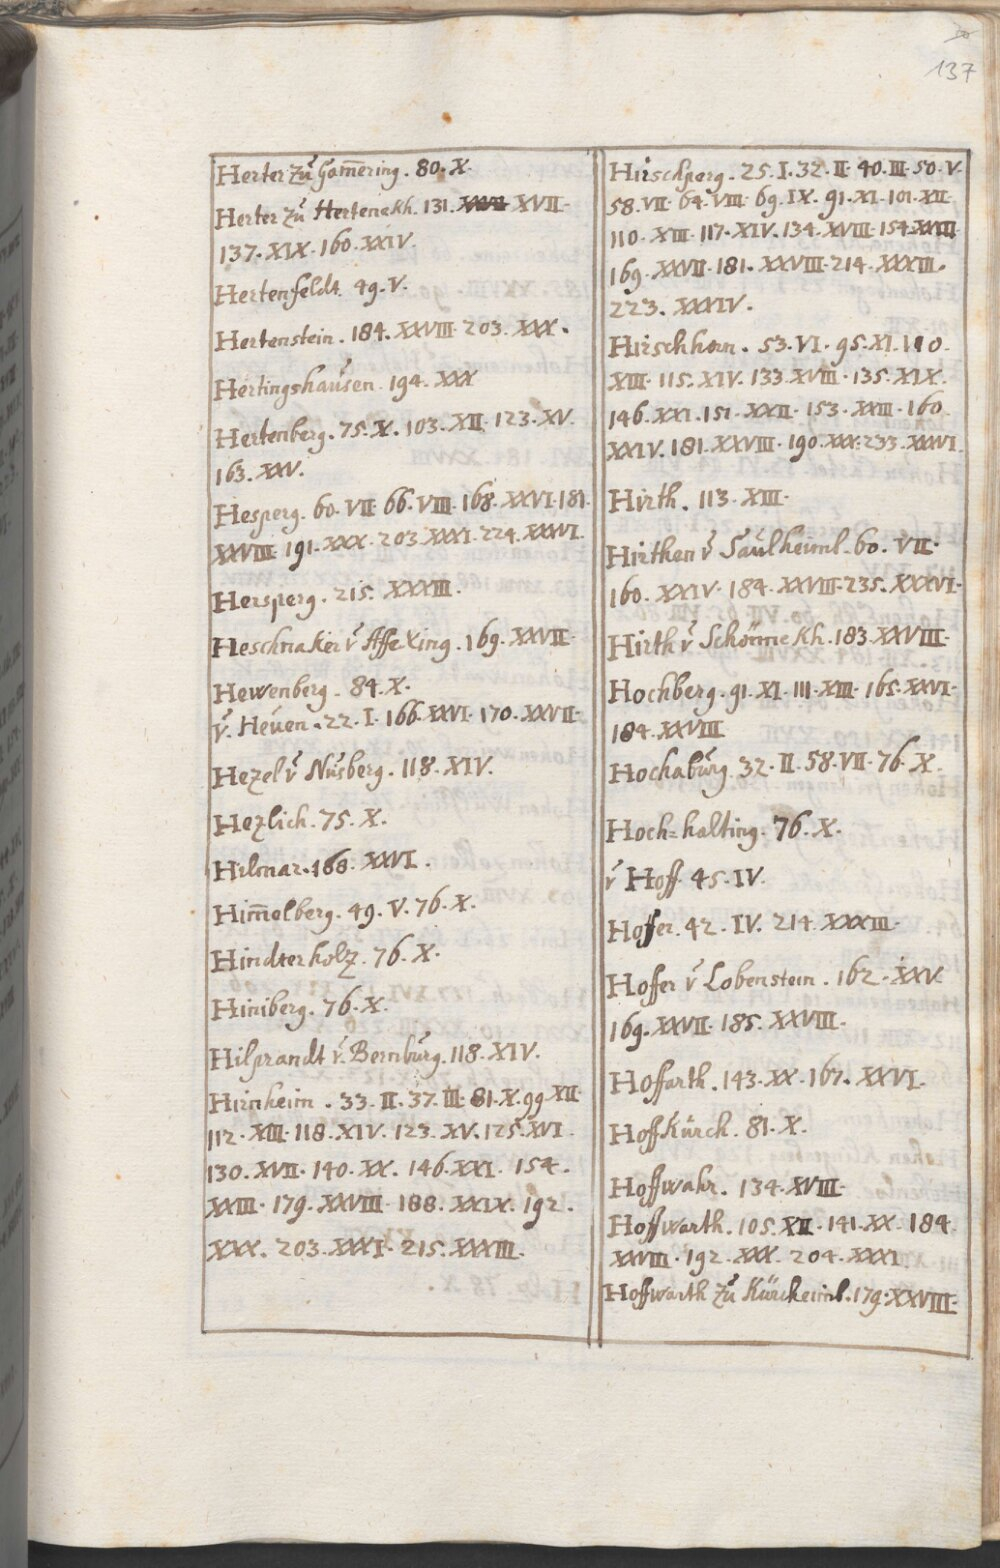 137
Herter zu Gam̄ering. 80. X.
Herter zu Hertenekh. 131. XVII.
137. XIX. 160. XXIV.
Hertenfeldt. 49. V.
Hertenstein. 184. XXVIII. 203. XXX.
Hertingshausen. 194. XXX
Hertenberg. 75. X. 103. XII. 123. XV.
163. XXV.
Hesperg. 60. VII. 66. VIII. 168. XXVI. 181.
XXVIII. 191. XXX. 203. XXXI. 224. XXXVI.
Hersperg. 215. XXXIII.
Heschnaker v̄ Affexing. 169. XXVII.
Hewenberg. 84. X.
v̄. Heuen. 22. I. 166. XXVI. 170. XXVII.
Hezel v̄ Nusberg. 118. XIV.
Hezlich. 75. X.
Hilmar. 168. XXVI.
Him̄elberg. 49. V. 76. X.
Hindterholz. 76. X.
Hiniberg. 76. X.
Hilprandt v̄. Bernburg. 118. XIV.
Hirnheim. 33. II. 37. III. 81. X. 99 XII.
112. XIII. 118. XIV. 123. XV. 125. XVI.
130. XVII. 140. XX. 146. XXI. 154.
XXIII. 179. XXVIII. 188. XXIX. 192.
XXX. 203. XXXI. 215. XXXIII.
Hirschperg. 25. I. 32. II. 40. III. 50. V.
58. VII. 64. VIII. 69. IX. 91. XI. 101. XII.
110. XIII. 117. XIV. 134. XVIII. 154. XXIII
169. XXVII. 181. XXVIII. 214. XXXIII.
223. XXXIV.
Hirschhorn. 53. VI. 95. XI. 110.
XIII. 115. XIV. 133. XVIII. 135. XIX.
146. XXI. 151. XXII. 153. XXIII. 160.
XXIV. 181. XXVIII. 190. XXX. 233. XXXVI.
Hirth. 113. XIII.
Hirthen v̄ Saulheiml. 60. VII.
160. XXIV. 184. XXVIII. 235. XXXVI.
Hirth v̄ Schönnekh. 183. XXVIII.
Hochberg. 91. XI. 111. XIII. 165. XXVI.
184. XXVIII
Hochaburg. 32. II. 58. VII. 76. X.
Hoch=halting. 76. X.
v̄ Hoff. 45. IV.
Hoffer. 42. IV. 214. XXXIII.
Hoffer v̄ Lobenstein. 162. XXV
169. XXVII. 185. XXVIII.
Hoffarth. 143. XX. 167. XXVI.
Hoffkürch. 81. X.
Hoffwahr. 134. XVIII.
Hoffwarth. 105. XII. 141. XX. 184
XXVIII. 192. XXX. 204. XXXI.
Hoffwarth zu Kürcheiml. 179. XXVIII.